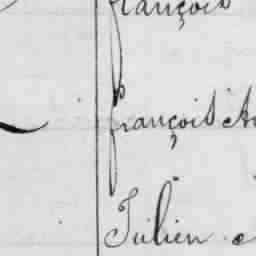 François
François
Julien